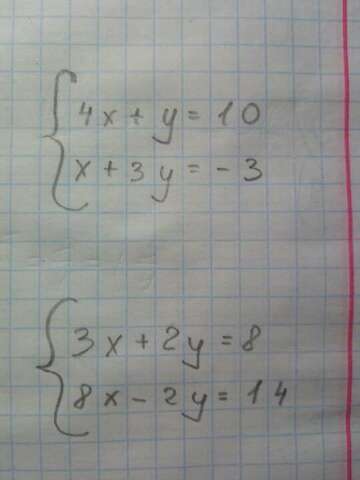 4x + y = 10
x + 3y = - 3
3x + 2y = 8
8x - 2y = 14